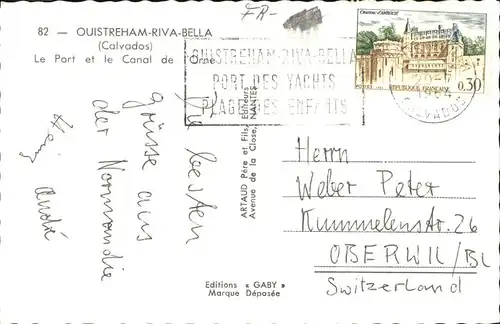 FR-
82 — OUISTREHAM-RIVA-BELLA
(Calvados)
Le Port et le Canal de l'Orne
OUISTREHAM-RIVA-BELLA
PORT DES YACHTS
PLAGE DES ENFANTS
0,30
POSTES
RÉPUBLIQUE FRANÇAISE
CALVADOS
Die besten
grüsse aus
der Normandie
André
ARTAUD Père et Fils, Editeurs
Avenue de la Close, NANTES
Editions « GABY »
Marque Déposée
Herrn
Weber Peter
Kummelenstr. 26
OBERWIL/BL
Switzerland